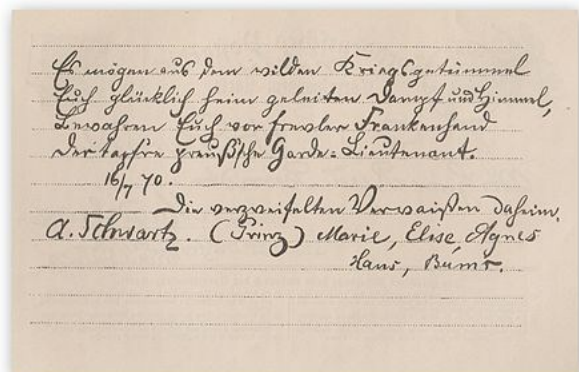 Es mögen aus dem wilden Kriegsgetümmel
Euch glücklich heim geleiten Dampf und Himmel,
Bewahren Euch vor frevler Frankenhand
Der tapfre preuß'sche Garde-Lieutenant.
16/7 70.
Die verzweifelten Verwaisten daheim.
A. Schwartz. (Prinz) Marie, Elise, Agnes
Hans,